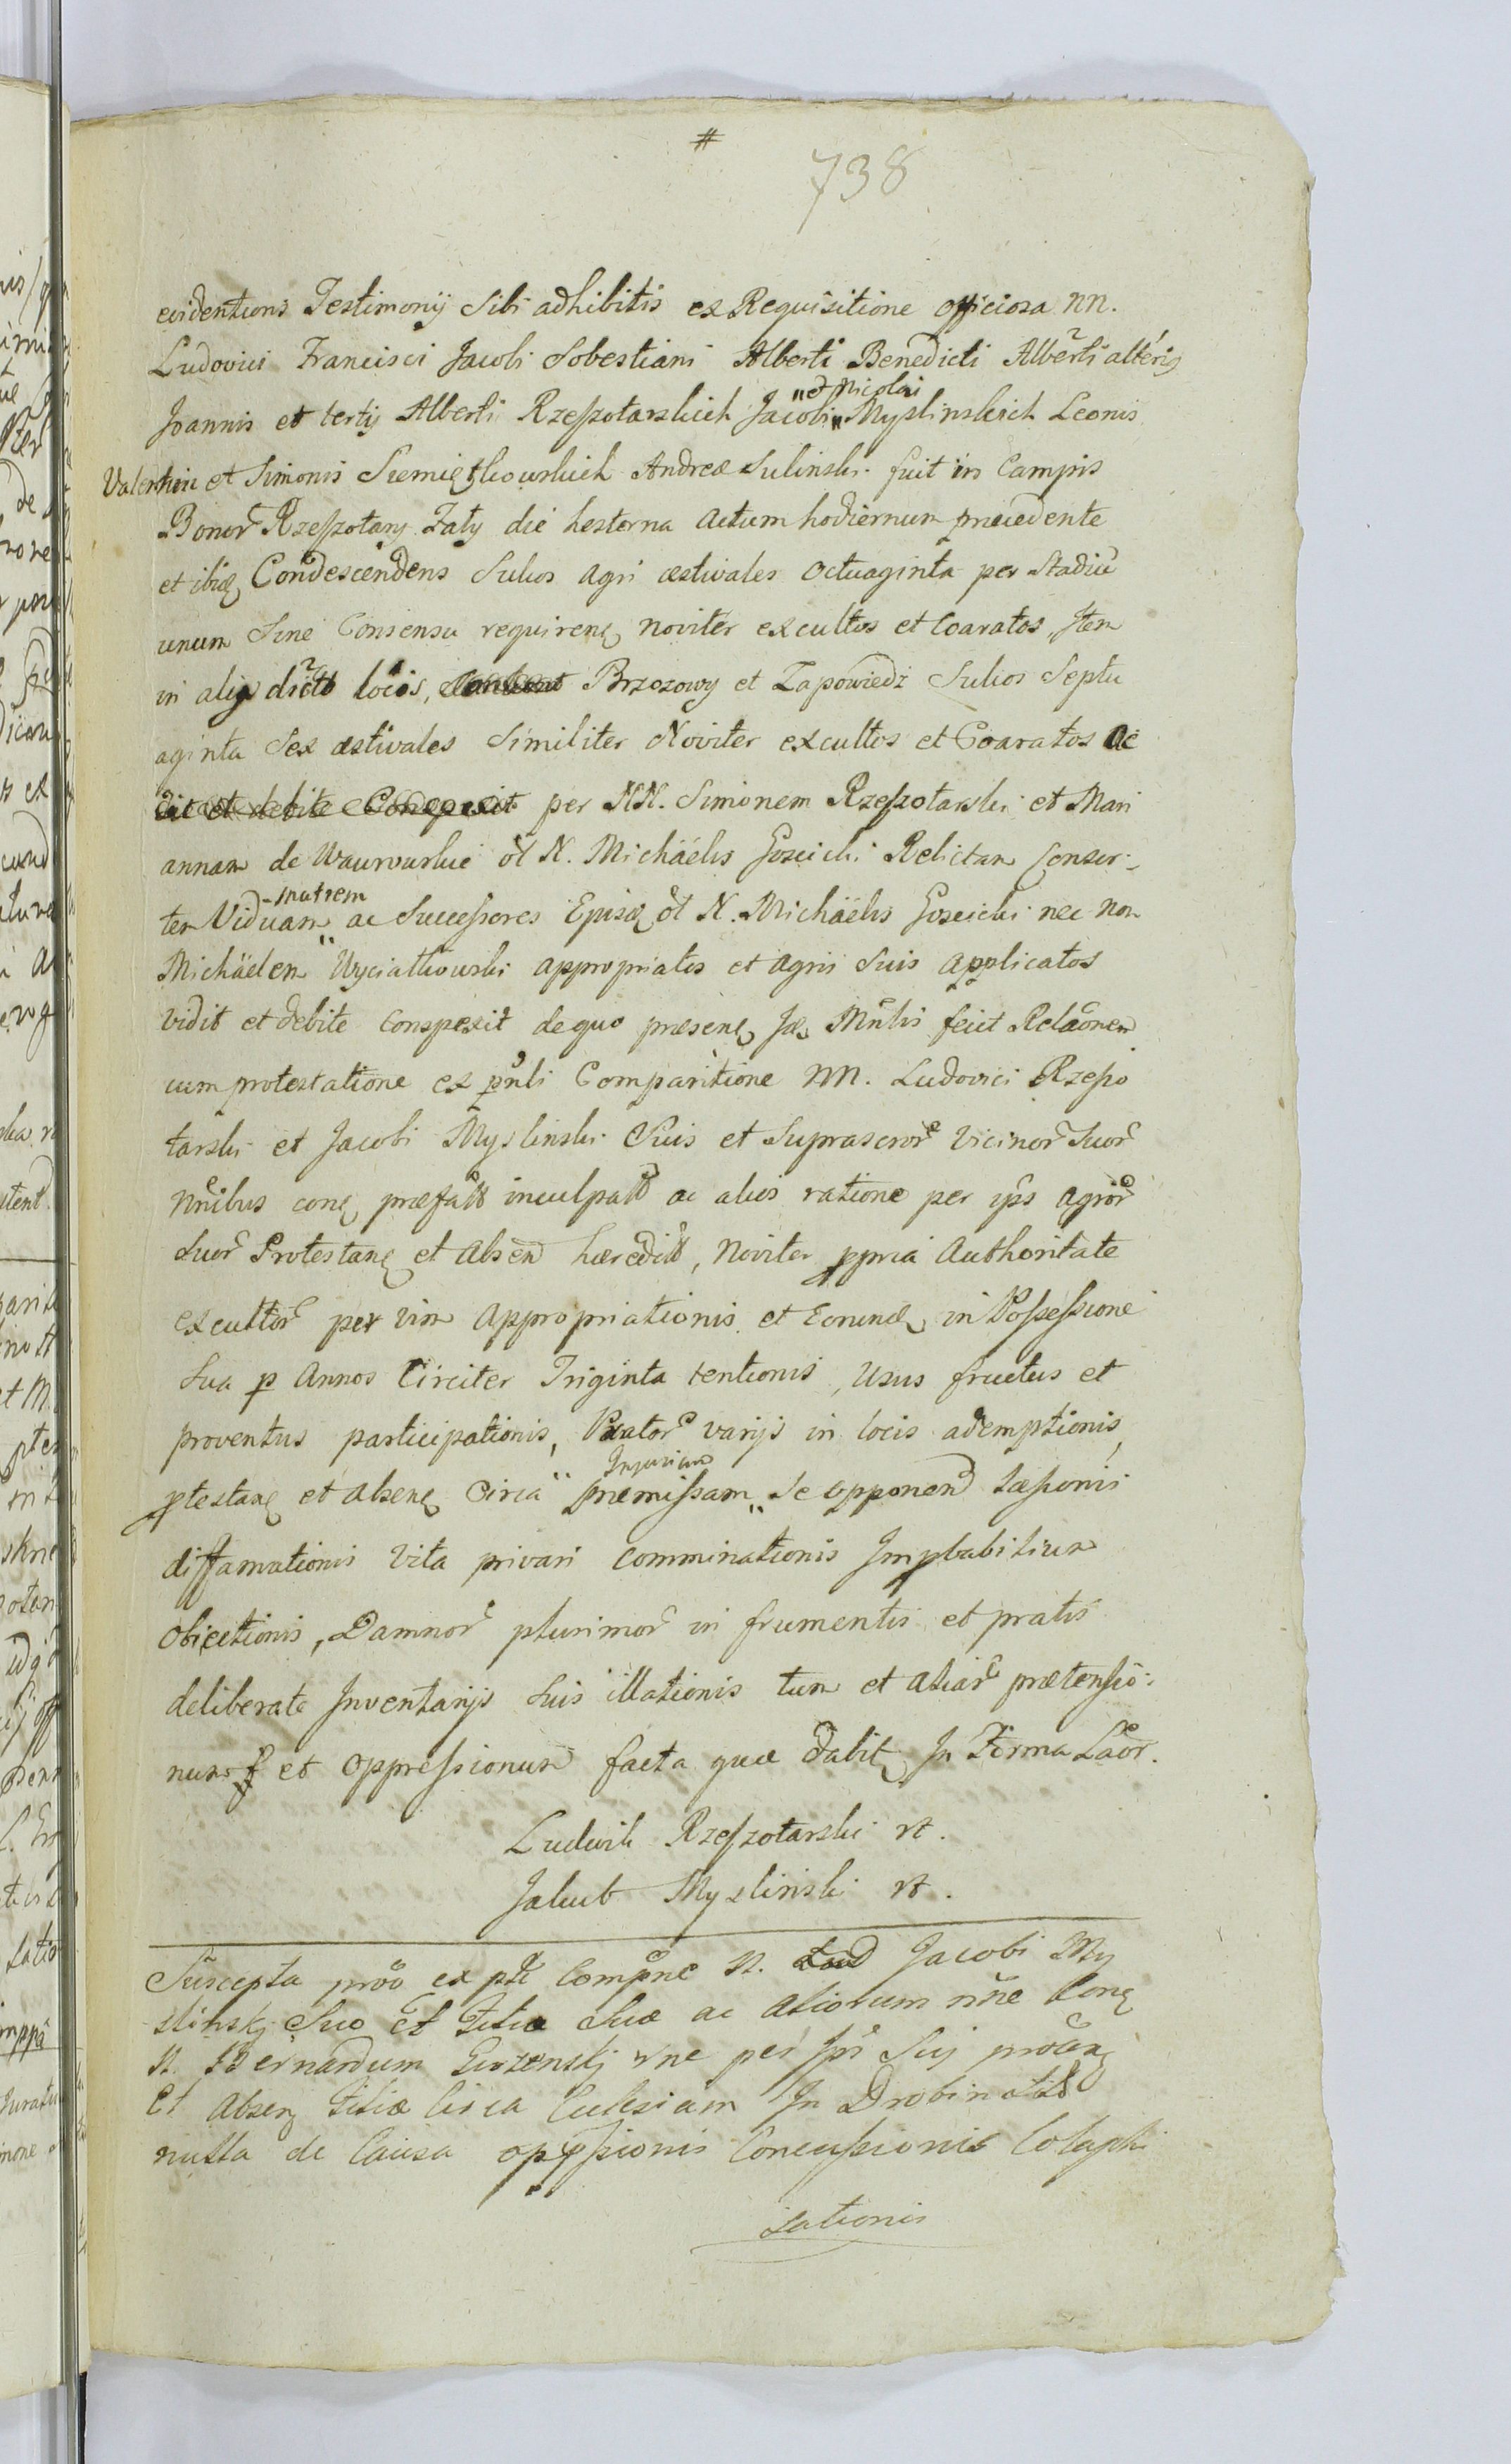 #
738
evidentioris Testimonij Sibi adhibitis ex Requisitione officiosa NN.
Ludovici Francisci Jacobi Sobestiani Alberti Benedicti Alberti alterig
"et Nicolai
Joannis et tertij Alberti Rzeszotarskich Jacobi " Myslinskich Leonis
Valentini et Simonis Siemiątkowskich Andreæ Sulinski fuit in Campis
Bonor Rzeszotary Zały die hesterna Actum hodiernum præcedente
et ibiq Condescendens Sulcos Agri æstivales Octuaginta per Stadiu
unum Sine Consensu requirenq Noviter excultos et Coaratos, Item
in alijs dictt locis, Brzozowy et Zapowiedz Sulcos Septu
aginta Sex æstivales Similiter Noviter excultos et Coaratos ac
dit et debite Conspexit per NN. Simonem Rzeszotarski et Mari
annam de ol N. Michäelis Goscicki Relictam Consor-
- matrem
tem Viduam " ac Successores Ejusq ol N. Michäelis Goscicki nec non
Michäelem Wyciatkowski appropriatos et Agris Suis applicatos
vidit et debite Conspexit de quo præsenq Jdæ Mnlis fecit Relaonem
cum protestatione ex pnli Comparitione NN. Ludovici Rzeszo
tarski et Jacobi Myslinski Suis et Suprascror Vicinor Suor
Nnibus conq præfatt inculpatt ac alios ratione per ips Agror
Suor Protestanq et Absen hæreditt, Noviter ppria Authoritate
excultor per vim Appropriationis et Eorunq in Possessione
Sua p Annos Circiter Triginta tentionis, Usus fructus et
proventus participationis, Prator varijs in locis ademptionis,
Injuriam
ptestanq et absenq Circa " præmissam " Se opponend Læsionis
diffamationis Vita privari Comminationis Improbabilium
Obiectionis, Damnor plurimor in frumentis et pratis
deliberate Inventarijs Suis illationis tum et Aliar prætensio:
num et Oppressionum facta quæ dabit In Terma Laor.
Ludwik Rzeszotarski rt.
Jakub Mysliński rt.
Suscepta proo ex pte Compne N. Jacobi My
slinskj Suo Et Filiæ Suæ ac Aliorum nne Conq
N. Bernardum Gurzenskj rne per Ips Sui
Et Absenq Filiæ Circa Eclesiam In Drobin
nulla de Causa oppssionis Concussionis Colaphi
zationis